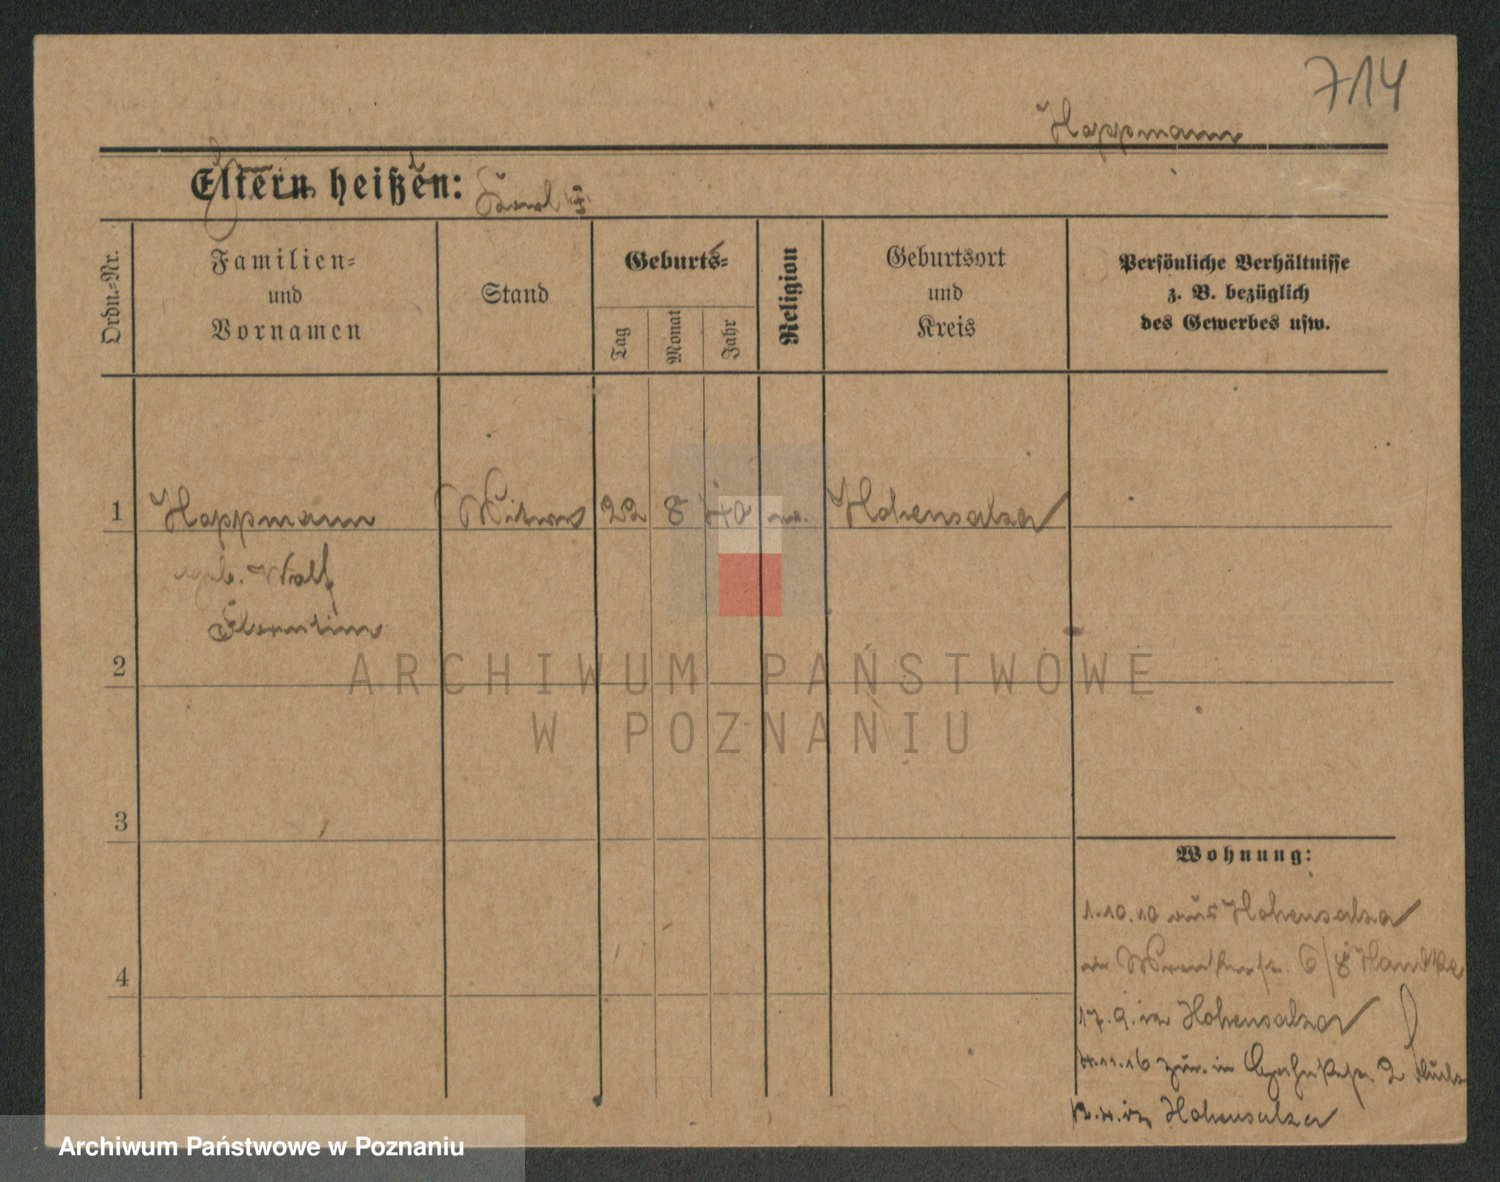 714
Hoppmann
Eltern heißen:
Ordn.-Nr.
Familien-
und
Vornamen
Stand
Geburts-
Tag
Monat
Jahr
Religion
Geburtsort
und
Kreis
Persönliche Verhältnisse
z. B. bezüglich
des Gewerbes usw.
1
Hoppmann
22 8 40
Hohensalza
geb. Wolf
2
3
4
Wohnung:
1.10.10 aus Hohensalza
6/8
17.9. in Hohensalza
11.16 zur. in 2
in Hohensalza
ARCHIWUM PAŃSTWOWE
W POZNANIU
Archiwum Państwowe w Poznaniu